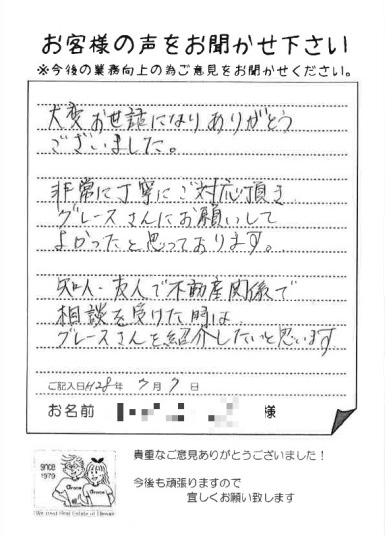 お客様の声をお聞かせ下さい
※今後の業務向上の為ご意見をお聞かせください。
大変お世話になりありがとう
ございました。
非常に丁寧にご対応頂き
グレースさんにお願いして
よかったと思っております。
知人・友人で不動産関係で
相談を受けた時は
グレースさんを紹介したいと思います
ご記入日H28年 7月 7日
お名前 様
since
1979
Grace
Grace
貴重なご意見ありがとうございました！
今後も頑張りますので
宜しくお願い致します